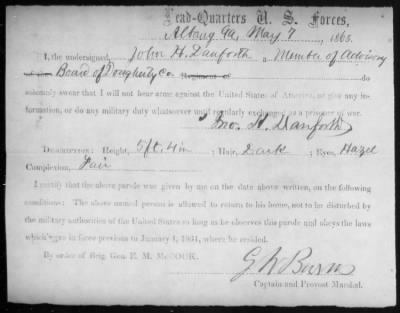 Head-Quarters U. S. Forces,
Albany Ga, May 7 1865.
I, the undersigned, John H. Danforth a Member of Advisory
Board of Dougherty Co. Regiment of do
solemnly swear that I will not bear arms against the United States of America, or give any in-
formation, or do any military duty whatsoever until regularly exchanged as a prisoner of war.
Jno. H. Danforth
Description: Height, 5 ft. 4 in; Hair, Dark; Eyes, Hazel
Complexion, Fair
I certify that the above parole was given by me on the date above written, on the following
conditions: The above named person is allowed to return to his home, not to be disturbed by
the military authorities of the United States so long as he observes this parole and obeys the laws
which were in force previous to January 1, 1861, where he resided.
By order of Brig. Gen. E. M. McCOOK.
Captain and Provost Marshal.